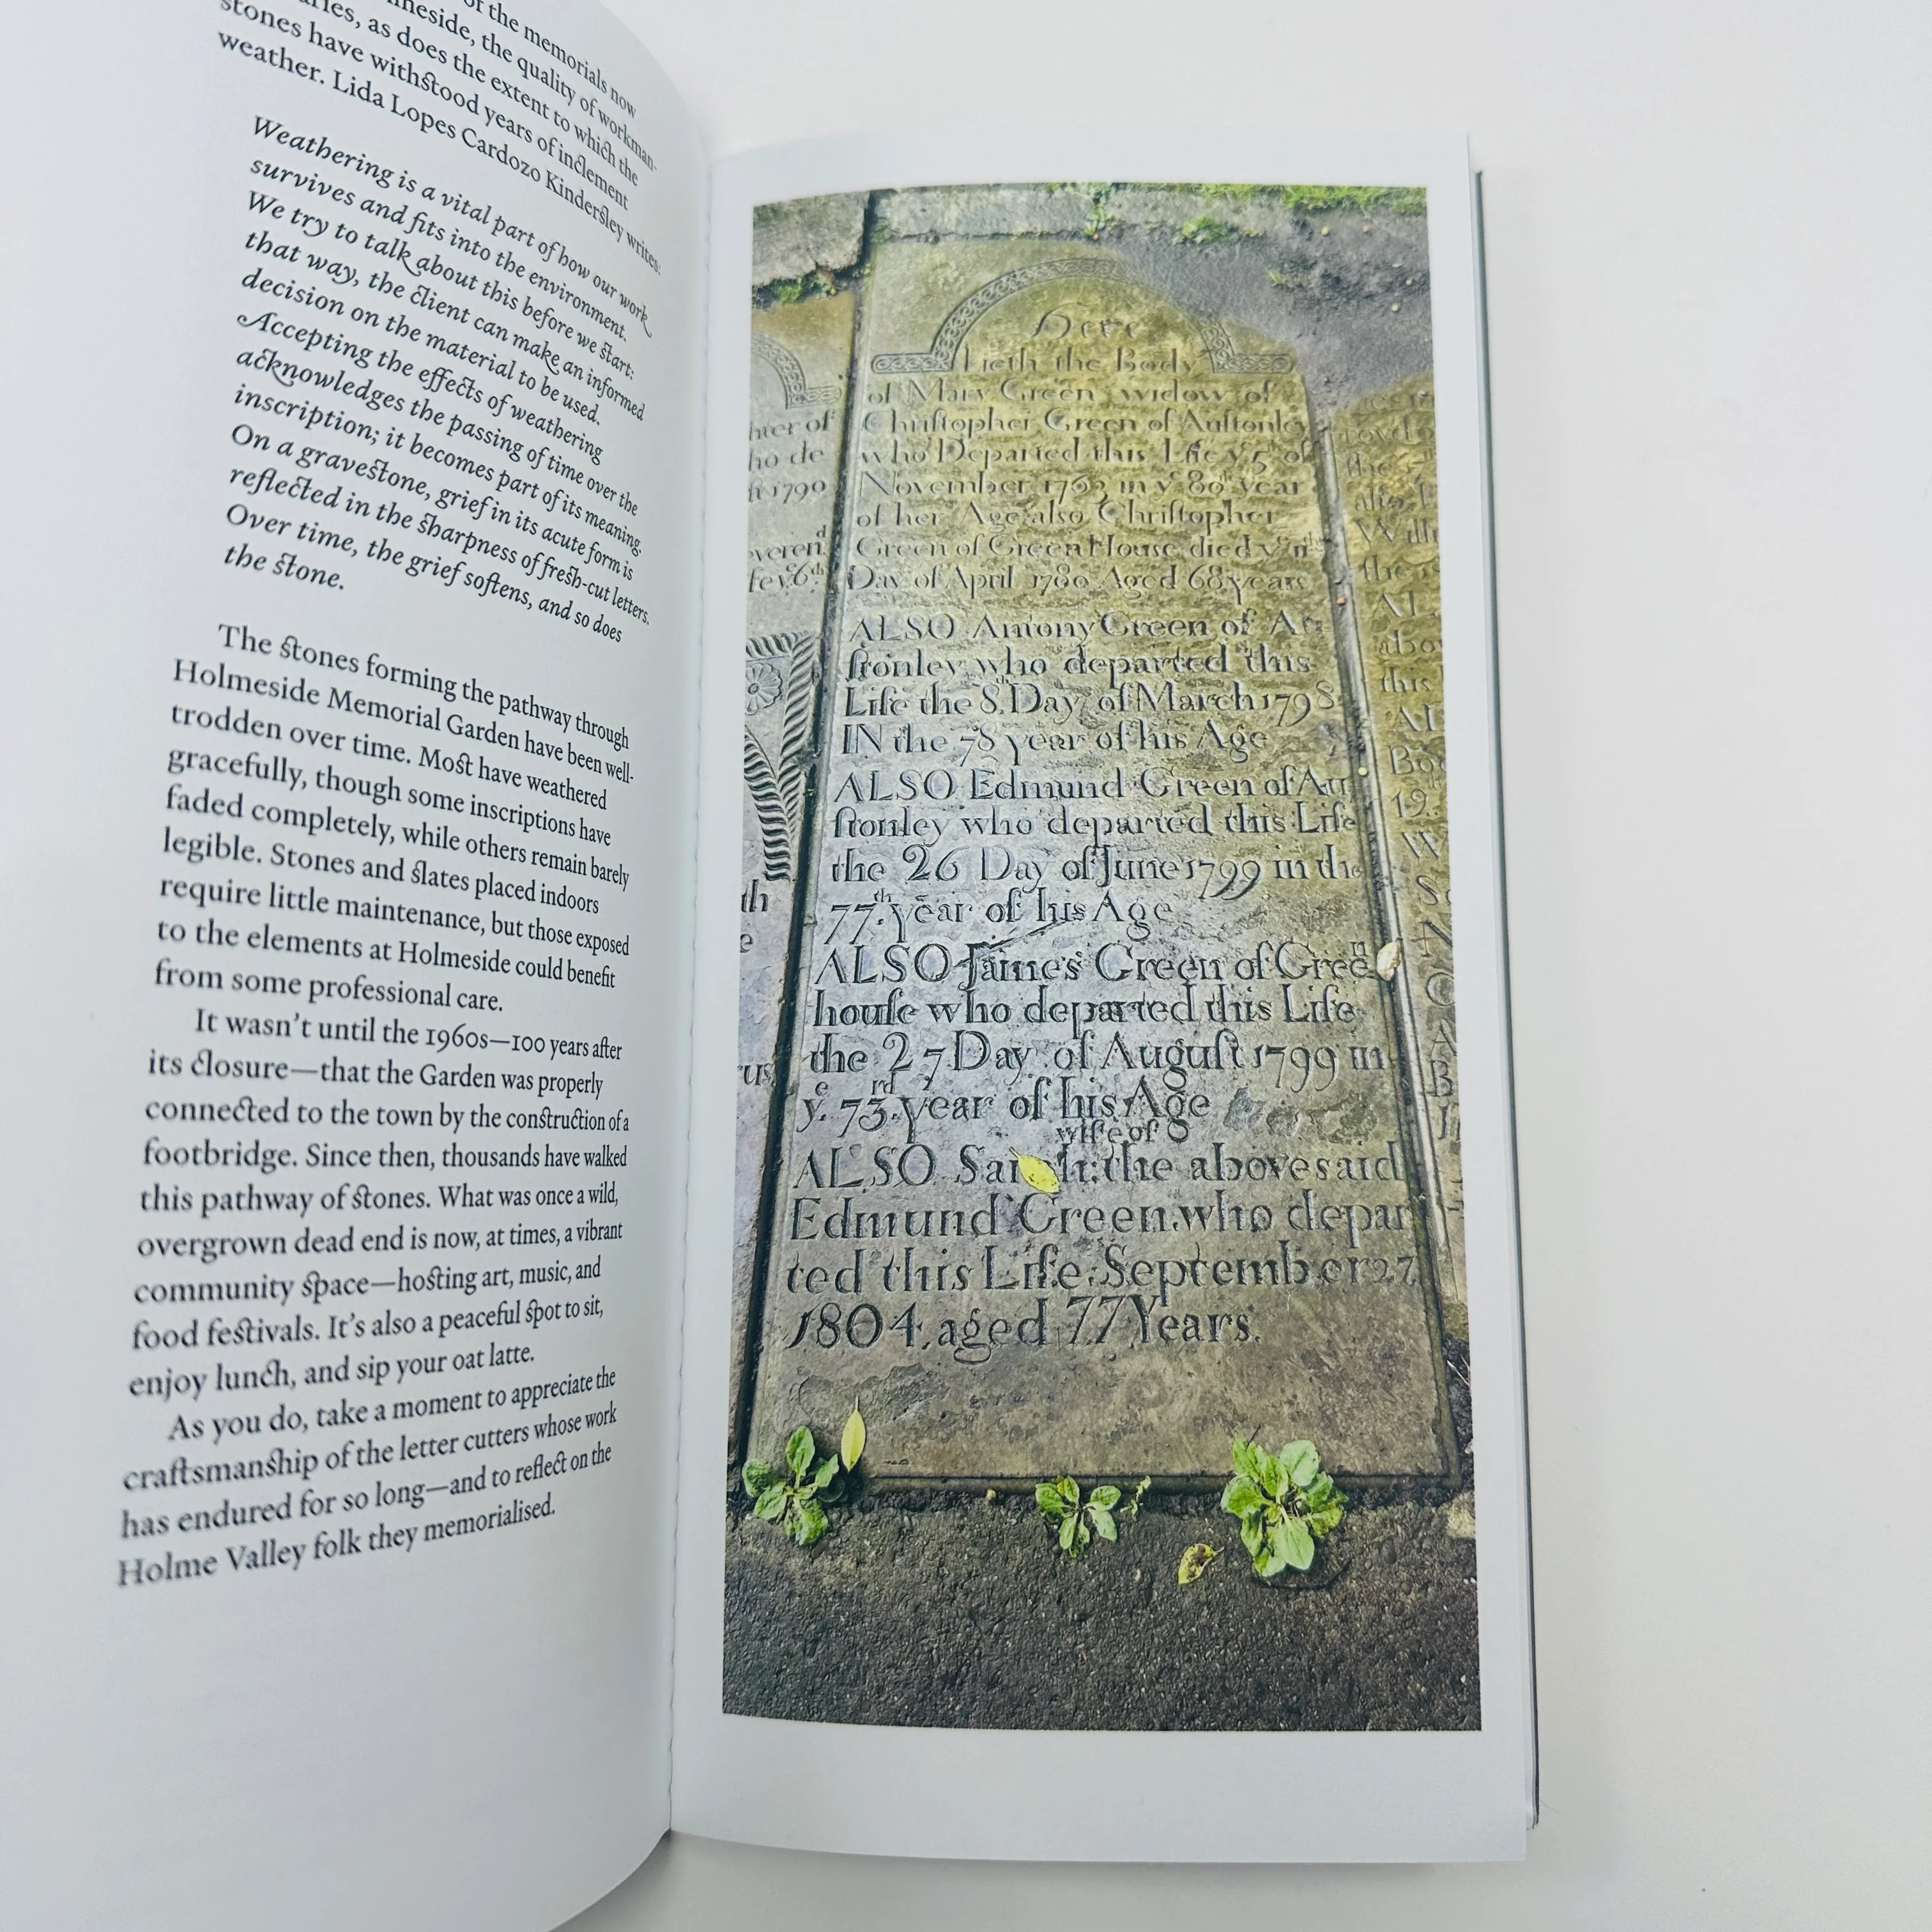 of the memorials now
the quality of workman-
as does the extent to which the
stones have withstood years of inclement
weather. Lida Lopes Cardozo Kindersley writes:
Weathering is a vital part of how our work
survives and fits into the environment.
We try to talk about this before we start:
that way, the client can make an informed
decision on the material to be used.
Accepting the effects of weathering
acknowledges the passing of time over the
inscription; it becomes part of its meaning.
On a gravestone, grief in its acute form is
reflected in the sharpness of fresh-cut letters.
Over time, the grief softens, and so does
the stone.
The stones forming the pathway through
Holmeside Memorial Garden have been well-
trodden over time. Most have weathered
gracefully, though some inscriptions have
faded completely, while others remain barely
legible. Stones and slates placed indoors
require little maintenance, but those exposed
to the elements at Holmeside could benefit
from some professional care.
It wasn't until the 1960s—100 years after
its closure—that the Garden was properly
connected to the town by the construction of a
footbridge. Since then, thousands have walked
this pathway of stones. What was once a wild,
overgrown dead end is now, at times, a vibrant
community space—hosting art, music, and
food festivals. It's also a peaceful spot to sit,
enjoy lunch, and sip your oat latte.
As you do, take a moment to appreciate the
craftsmanship of the letter cutters whose work
has endured for so long—and to reflect on the
Holme Valley folk they memorialised.
Here
Lieth the Body
of Mary Green widow of
Chriſtopher Green of Auſtonley
who Departed this Life yͤ 5 of
November 1763 in yͤ 80th year
of her Age also Chriſtopher
Green of Green House died yͤ 11th
Day of April 1780 Aged 68 years
ALSO Antony Green of Au
ſtonley who departed this
Life the 8th Day of March 1798
IN the 78 year of his Age
ALSO Edmund Green of Au
ſtonley who departed this Life
the 26 Day of June 1799 in the
77th year of his Age
ALSO James Green of Green
houſe who departed this Life
the 27 Day of Auguſt 1799 in
yͤ 73rd year of his Age
wife of
ALSO the abovesaid
Edmund Green who depar
ted this Life September 27
1804 aged 77 Years.